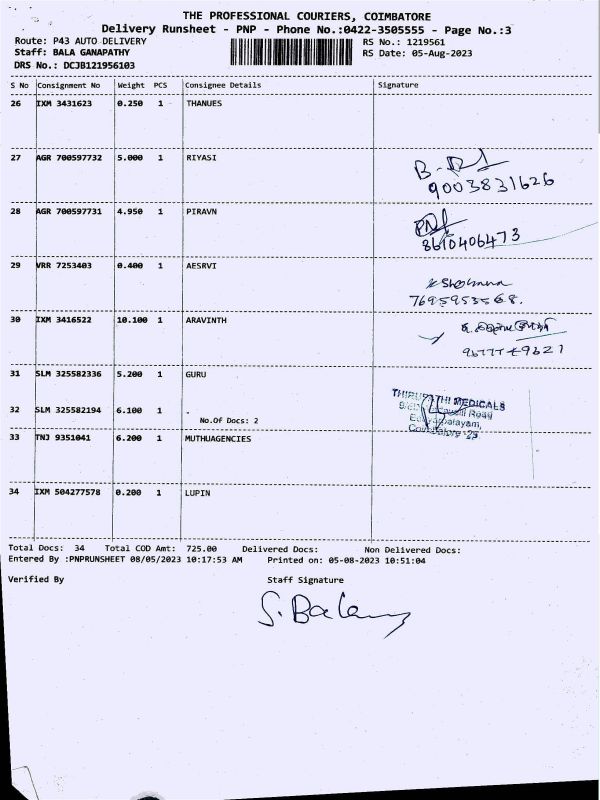 THE PROFESSIONAL COURIERS, COIMBATORE
Delivery Runsheet - PNP - Phone No.:0422-3505555 - Page No.:3
Route: P43 AUTO DELIVERY RS No.: 1219561
Staff: BALA GANAPATHY RS Date: 05-Aug-2023
DRS No.: DCJB121956103
S No Consignment No Weight PCS Consignee Details Signature
26 IXM 3431623 0.250 1 THANUES
27 AGR 700597732 5.000 1 RIYASI
9003831626
28 AGR 700597731 4.950 1 PIRAVN
8610406473
29 VRR 7253403 0.400 1 AESRVI
7695953568.
30 IXM 3416522 10.100 1 ARAVINTH
31 SLM 325582336 5.200 1 GURU
THIRUPATHI MEDICALS
32 SLM 325582194 6.100 1 .
No.Of Docs: 2
33 TNJ 9351041 6.200 1 MUTHUAGENCIES
34 IXM 504277578 0.200 1 LUPIN
Total Docs: 34 Total COD Amt: 725.00 Delivered Docs: Non Delivered Docs:
Entered By :PNPRUNSHEET 08/05/2023 10:17:53 AM Printed on: 05-08-2023 10:51:04
Verified By Staff Signature
S. Bala